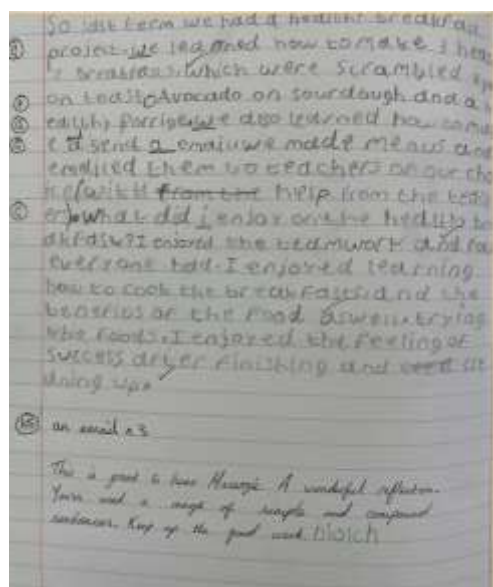 So last term we had a healthy breakfast
project. we learned how to make 3 hea
y breakfasts. which were scrambled
on toast, Avocado on sourdough and a
ealthy porrige. we also learned how
to send a email we made menus and
emailed them to teachers on our
(with from the help from the
er) what did i enjoy on the
I enjoyed the teamwork and
everyone had. I enjoyed learning
how to cook the breakfasts and the
benefits of the food aswell. trying
the foods. I enjoyed the feeling of
success after finishing and
uning up.
an email x3
This is great to hear A wonderful reflection.
You've used a range of simple and compound
sentences. Keep up the good work.